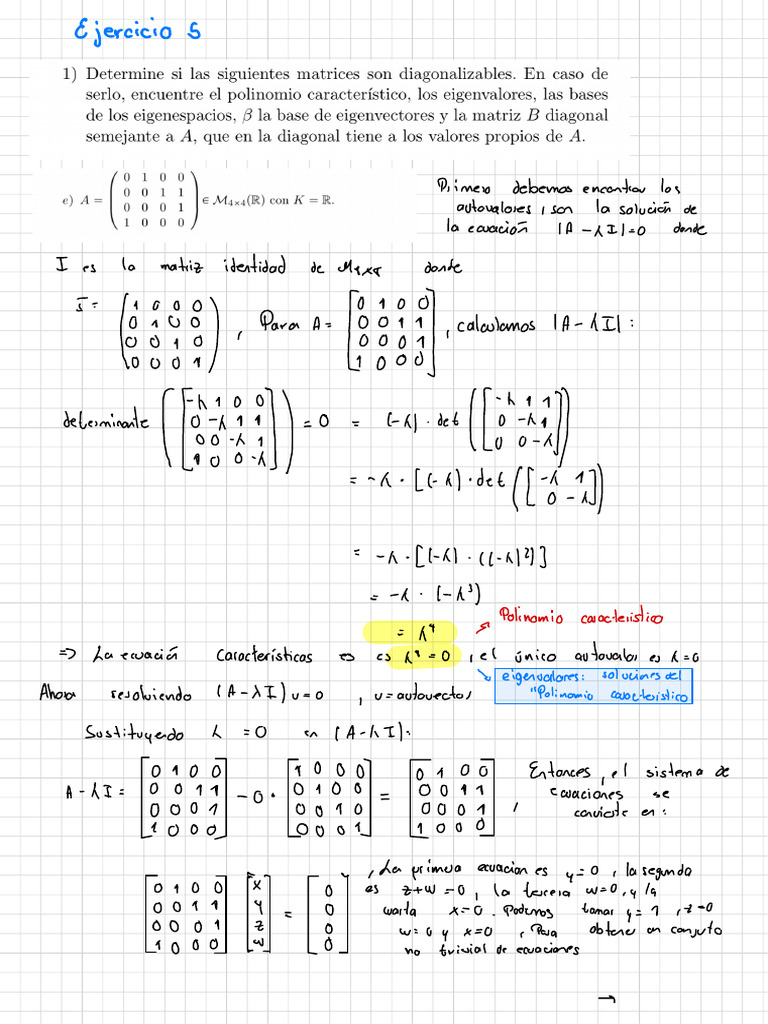 Ejercicio 5
1) Determine si las siguientes matrices son diagonalizables. En caso de
serlo, encuentre el polinomio característico, los eigenvalores, las bases
de los eigenespacios, β la base de eigenvectores y la matriz B diagonal
semejante a A, que en la diagonal tiene a los valores propios de A.
e) A = ( 0 1 0 0
0 0 1 1
0 0 0 1
1 0 0 0 ) ∈ M₄ₓ₄(ℝ) con K = ℝ.
Primero debemos encontrar los
autovalores, son la solución de
la ecuación |A - λI|=0 donde
I es la matriz identidad de M₄ₓ₄ donde
I = ( 1 0 0 0
0 1 0 0
0 0 1 0
0 0 0 1 ) , Para A = [ 0 1 0 0
0 0 1 1
0 0 0 1
1 0 0 0 ] , calculamos |A - λI| :
determinante ( [ -λ 1 0 0
0 -λ 1 1
0 0 -λ 1
1 0 0 -λ ] ) = 0 = (-λ) · det ( [ -λ 1 1
0 -λ 1
0 0 -λ ] )
= -λ · [(-λ) · det ( [ -λ 1
0 -λ ] )
= -λ · [(-λ) · ((-λ)²)]
= -λ · (-λ³)
= λ⁴
Polinomio característico
=> La ecuación características es es λ⁴ = 0 , el único autovalor es λ=0
eigenvalores: soluciones del
"Polinomio característico
Ahora resolviendo (A - λI) u = 0 , u = autovector
Sustituyendo λ = 0 en (A - λI):
A - λI = [ 0 1 0 0
0 0 1 1
0 0 0 1
1 0 0 0 ] - 0 · [ 1 0 0 0
0 1 0 0
0 0 1 0
0 0 0 1 ] = [ 0 1 0 0
0 0 1 1
0 0 0 1
1 0 0 0 ] ,
Entonces, el sistema de
ecuaciones se
convierte en:
[ 0 1 0 0
0 0 1 1
0 0 0 1
1 0 0 0 ] [ x
y
z
w ] = [ 0
0
0
0 ]
, La primera ecuacion es y=0 , la segunda
es z+w=0 , la tercera w=0, y la
cuarta x=0. Podemos tomar y=1 , z=0
w=0 y x=0 , Para obtener un conjunto
no trivial de ecuaciones
→